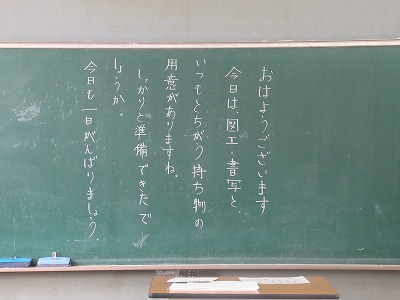 おはようございます
今日は、図工・書写と
いつもとちがう持ち物の
用意がありますね。
しっかりと準備できたで
しょうか。
今日も一日がんばりましょう。